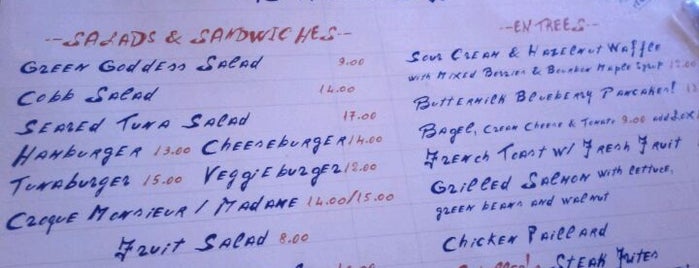 --SALADS & SANDWICHES--
GREEN GODDESS SALAD 9.00
COBB SALAD 14.00
SEARED TUNA SALAD 17.00
HAMBURGER 13.00 CHEESEBURGER 14.00
TUNABURGER 15.00 VEGGIEBURGER 12.00
CROQUE MONSIEUR / MADAME 14.00/15.00
FRUIT SALAD 8.00
--ENTREES--
SOUR CREAM & HAZELNUT WAFFLE
WITH MIXED BERRIES & BOURBON MAPLE SYRUP 12.00
BUTTERMILK BLUEBERRY PANCAKES!
BAGEL, CREAM CHEESE & TOMATO 9.00 add LOX
FRENCH TOAST W/ FRESH FRUIT
GRILLED SALMON with lettuce,
green beans and walnut
CHICKEN PAILLARD
STEAK FRITES